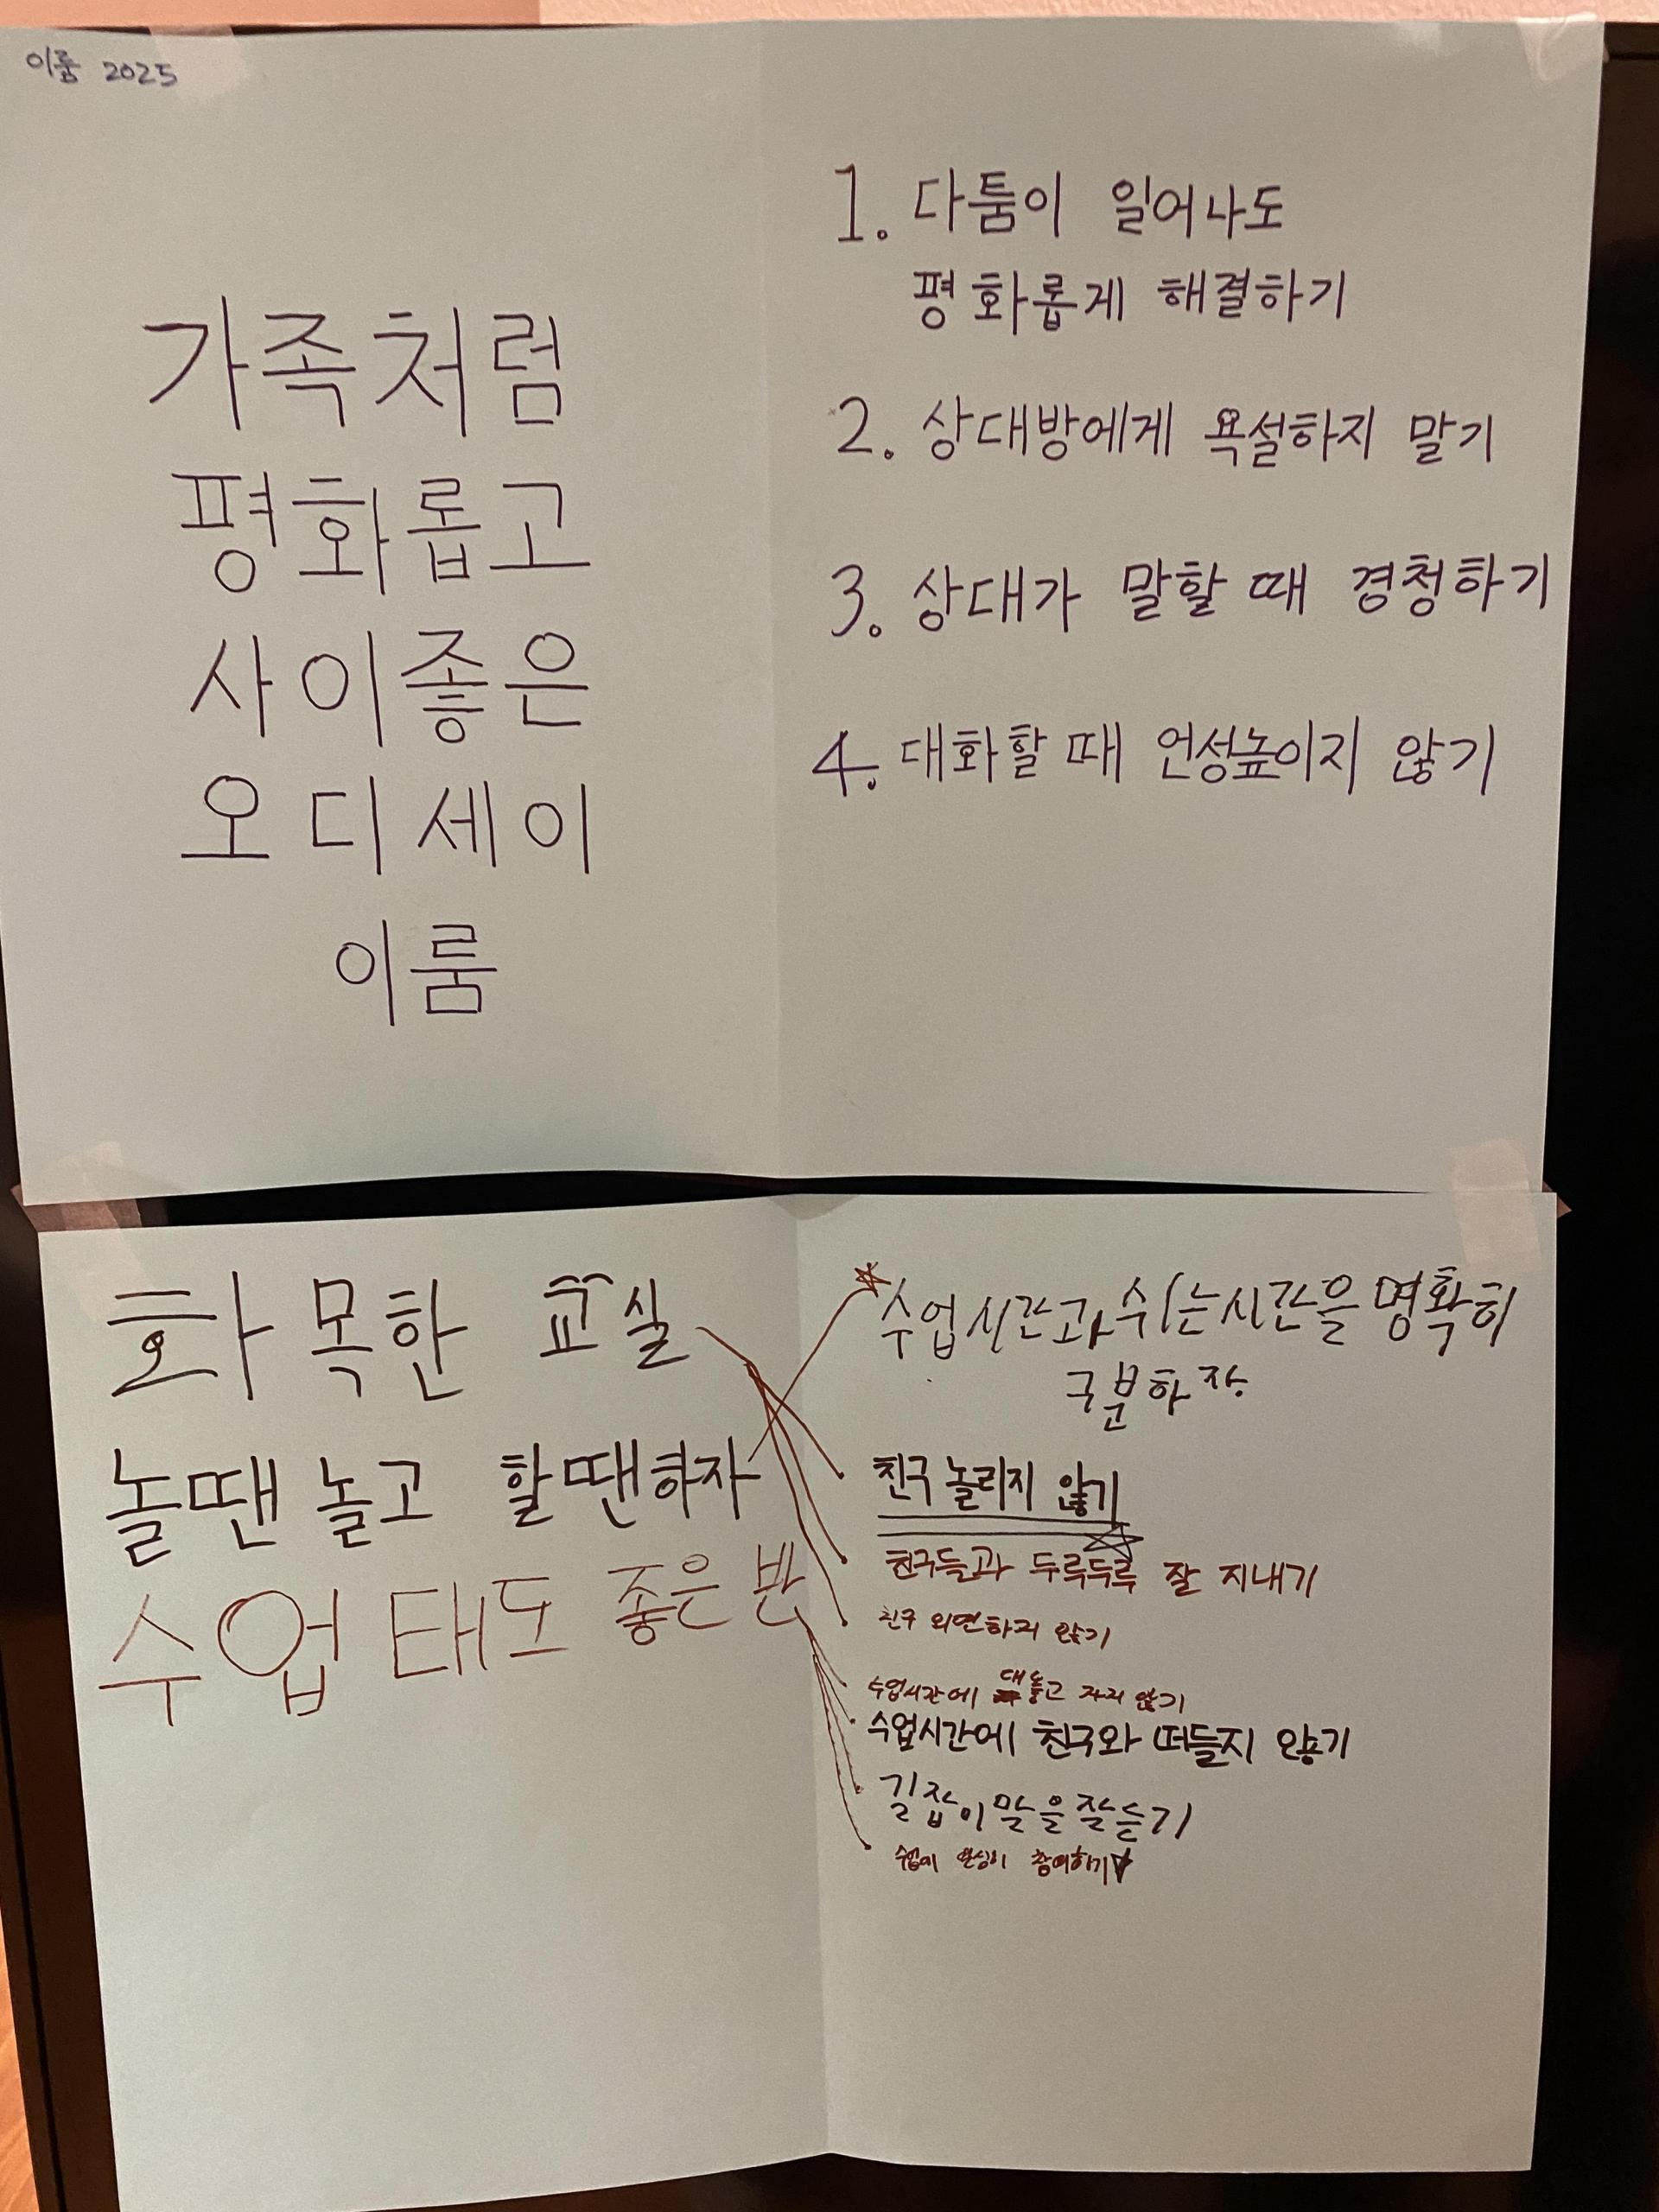 이룸 2025
가족처럼
평화롭고
사이좋은
오디세이
이룸
1. 다툼이 일어나도
평화롭게 해결하기
2. 상대방에게 욕설하지 말기
3. 상대가 말할 때 경청하기
4. 대화할 때 언성높이지 않기
화목한 교실
놀땐 놀고 할땐하자
수업 태도 좋은 반
수업시간과 쉬는시간을 명확히
구분하자.
친구 놀리지 않기
친구들과 두루두루 잘 지내기
친구 외면하지 않기
수업시간에 대놓고 자지 않기
수업시간에 친구와 떠들지 않기
길잡이 말을 잘 듣기
수업에 열심히 참여하기